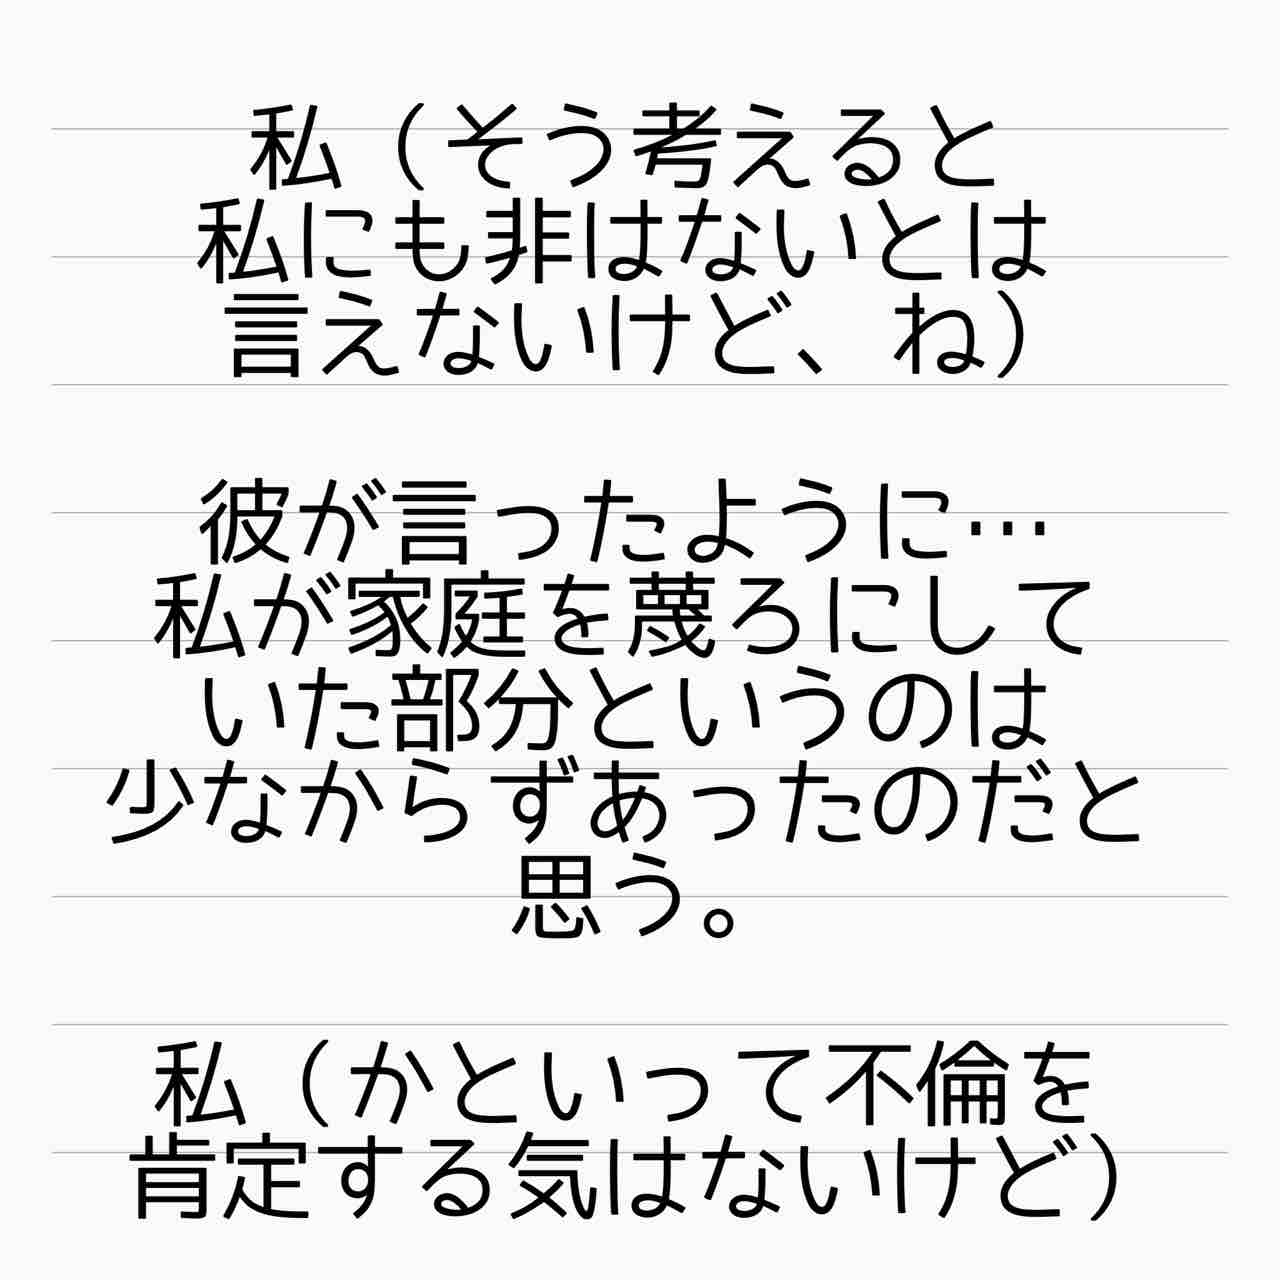 私（そう考えると
私にも非はないとは
言えないけど、ね）
彼が言ったように…
私が家庭を蔑ろにして
いた部分というのは
少なからずあったのだと
思う。
私（かといって不倫を
肯定する気はないけど）